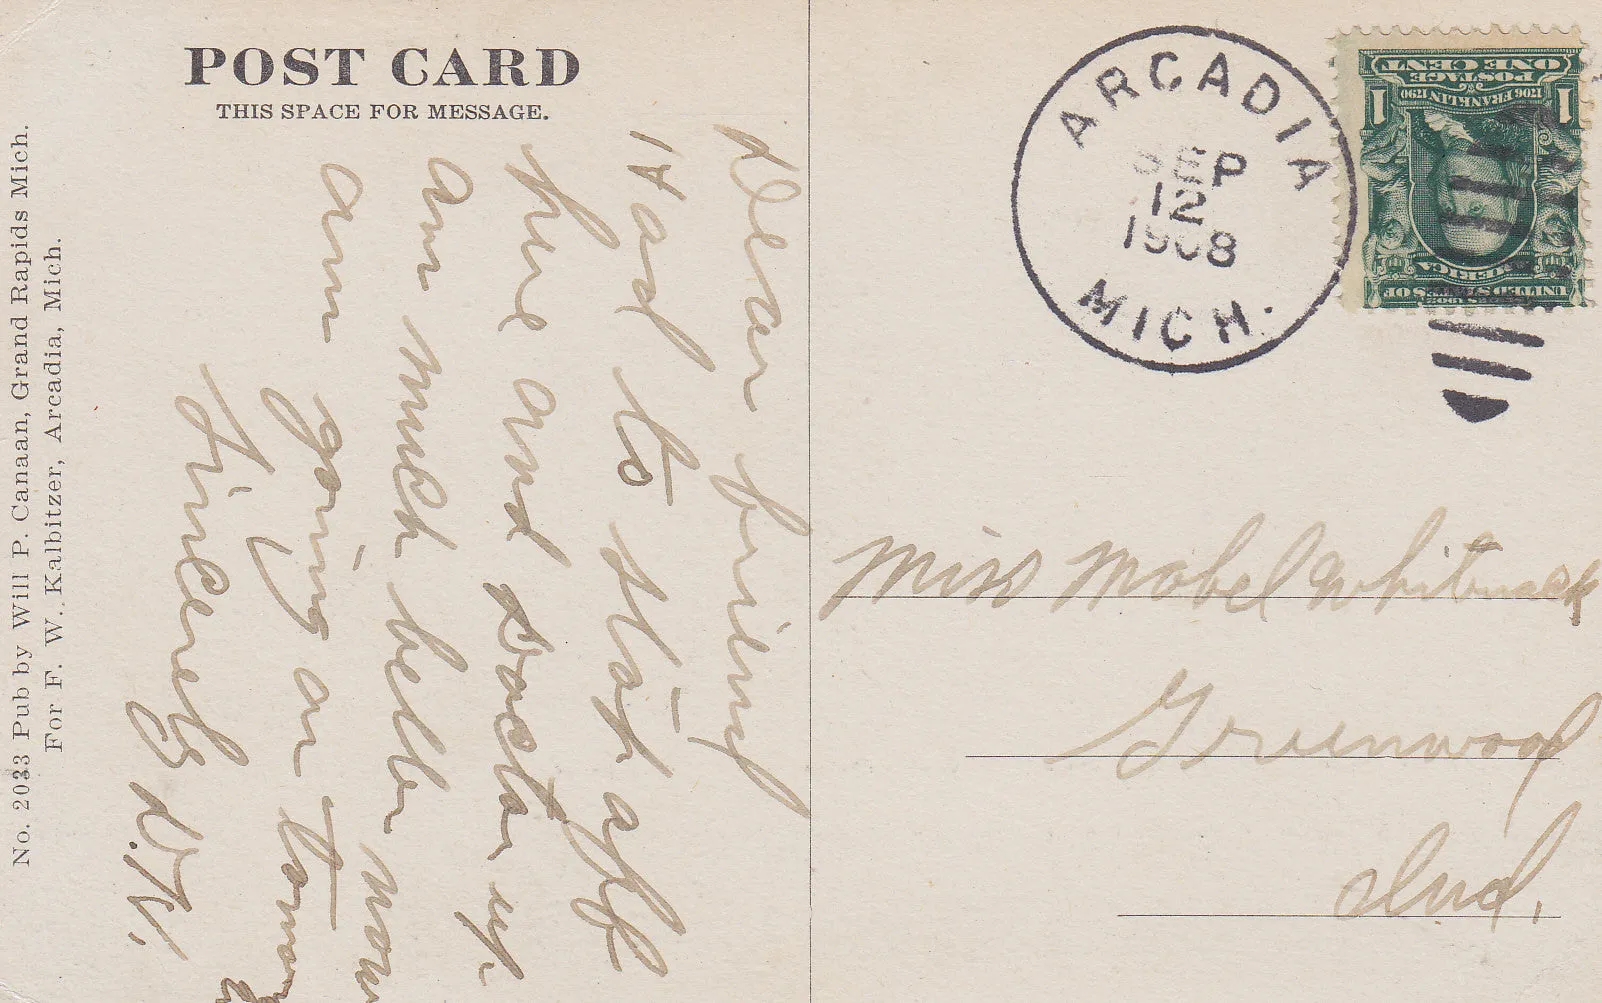 POST CARD
THIS SPACE FOR MESSAGE.
No. 2033 Pub by Will P. Canaan, Grand Rapids Mich.
For F. W. Kalbitzer, Arcadia, Mich.
Dear friend
Had to stop off
here and Doctor up.
am much better now
am going on tomor
Sincerely D.K.
ARCADIA
SEP
12
1908
MICH.
UNITED STATES OF
AMERICA
1706 FRANKLIN 1790
POSTAGE
ONE CENT
1 1
Miss Mabel Whitenack
Greenwood
Ind.